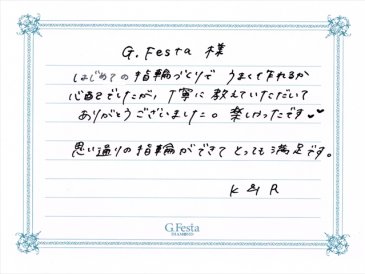 G.Festa 様
はじめての指輪づくりで うまく作れるか
心配でしたが、丁寧に教えていただいて
ありがとうございました。楽しかったです♥♥
思い通りの指輪ができてとっても満足です。
K & R
G.Festa
DIAMOND